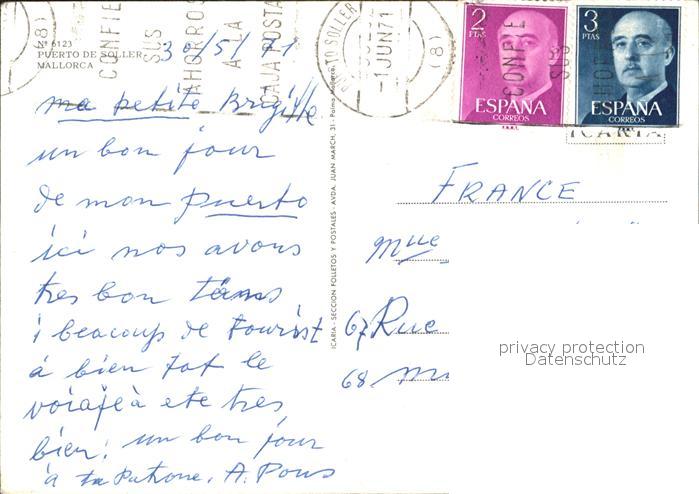 Nº 6123
PUERTO DE SOLLER
MALLORCA
30/5/71
CONFIE
SUS
AHORROS
A LA
CAJA POSTAL
PTO SOLLER
-1JUN.71
(8)
2
PTAS
ESPAÑA
CORREOS
F.N.M.T.
3
PTAS
ESPAÑA
CORREOS
ICARIA
ma petite Brigitte
un bon jour
de mon puerto
ici nos avons
tres bon
i beacoup de tourist
á bien tot le
voiaje à ete tres
bien: un bon jour
à ta Patrone. A. Pons
ICARIA - SECCION FOLLETOS Y POSTALES - AVDA. JUAN MARCH, 31 - Palma Mallorca
FRANCE
Mlle
67 Rue
68
privacy protection
Datenschutz